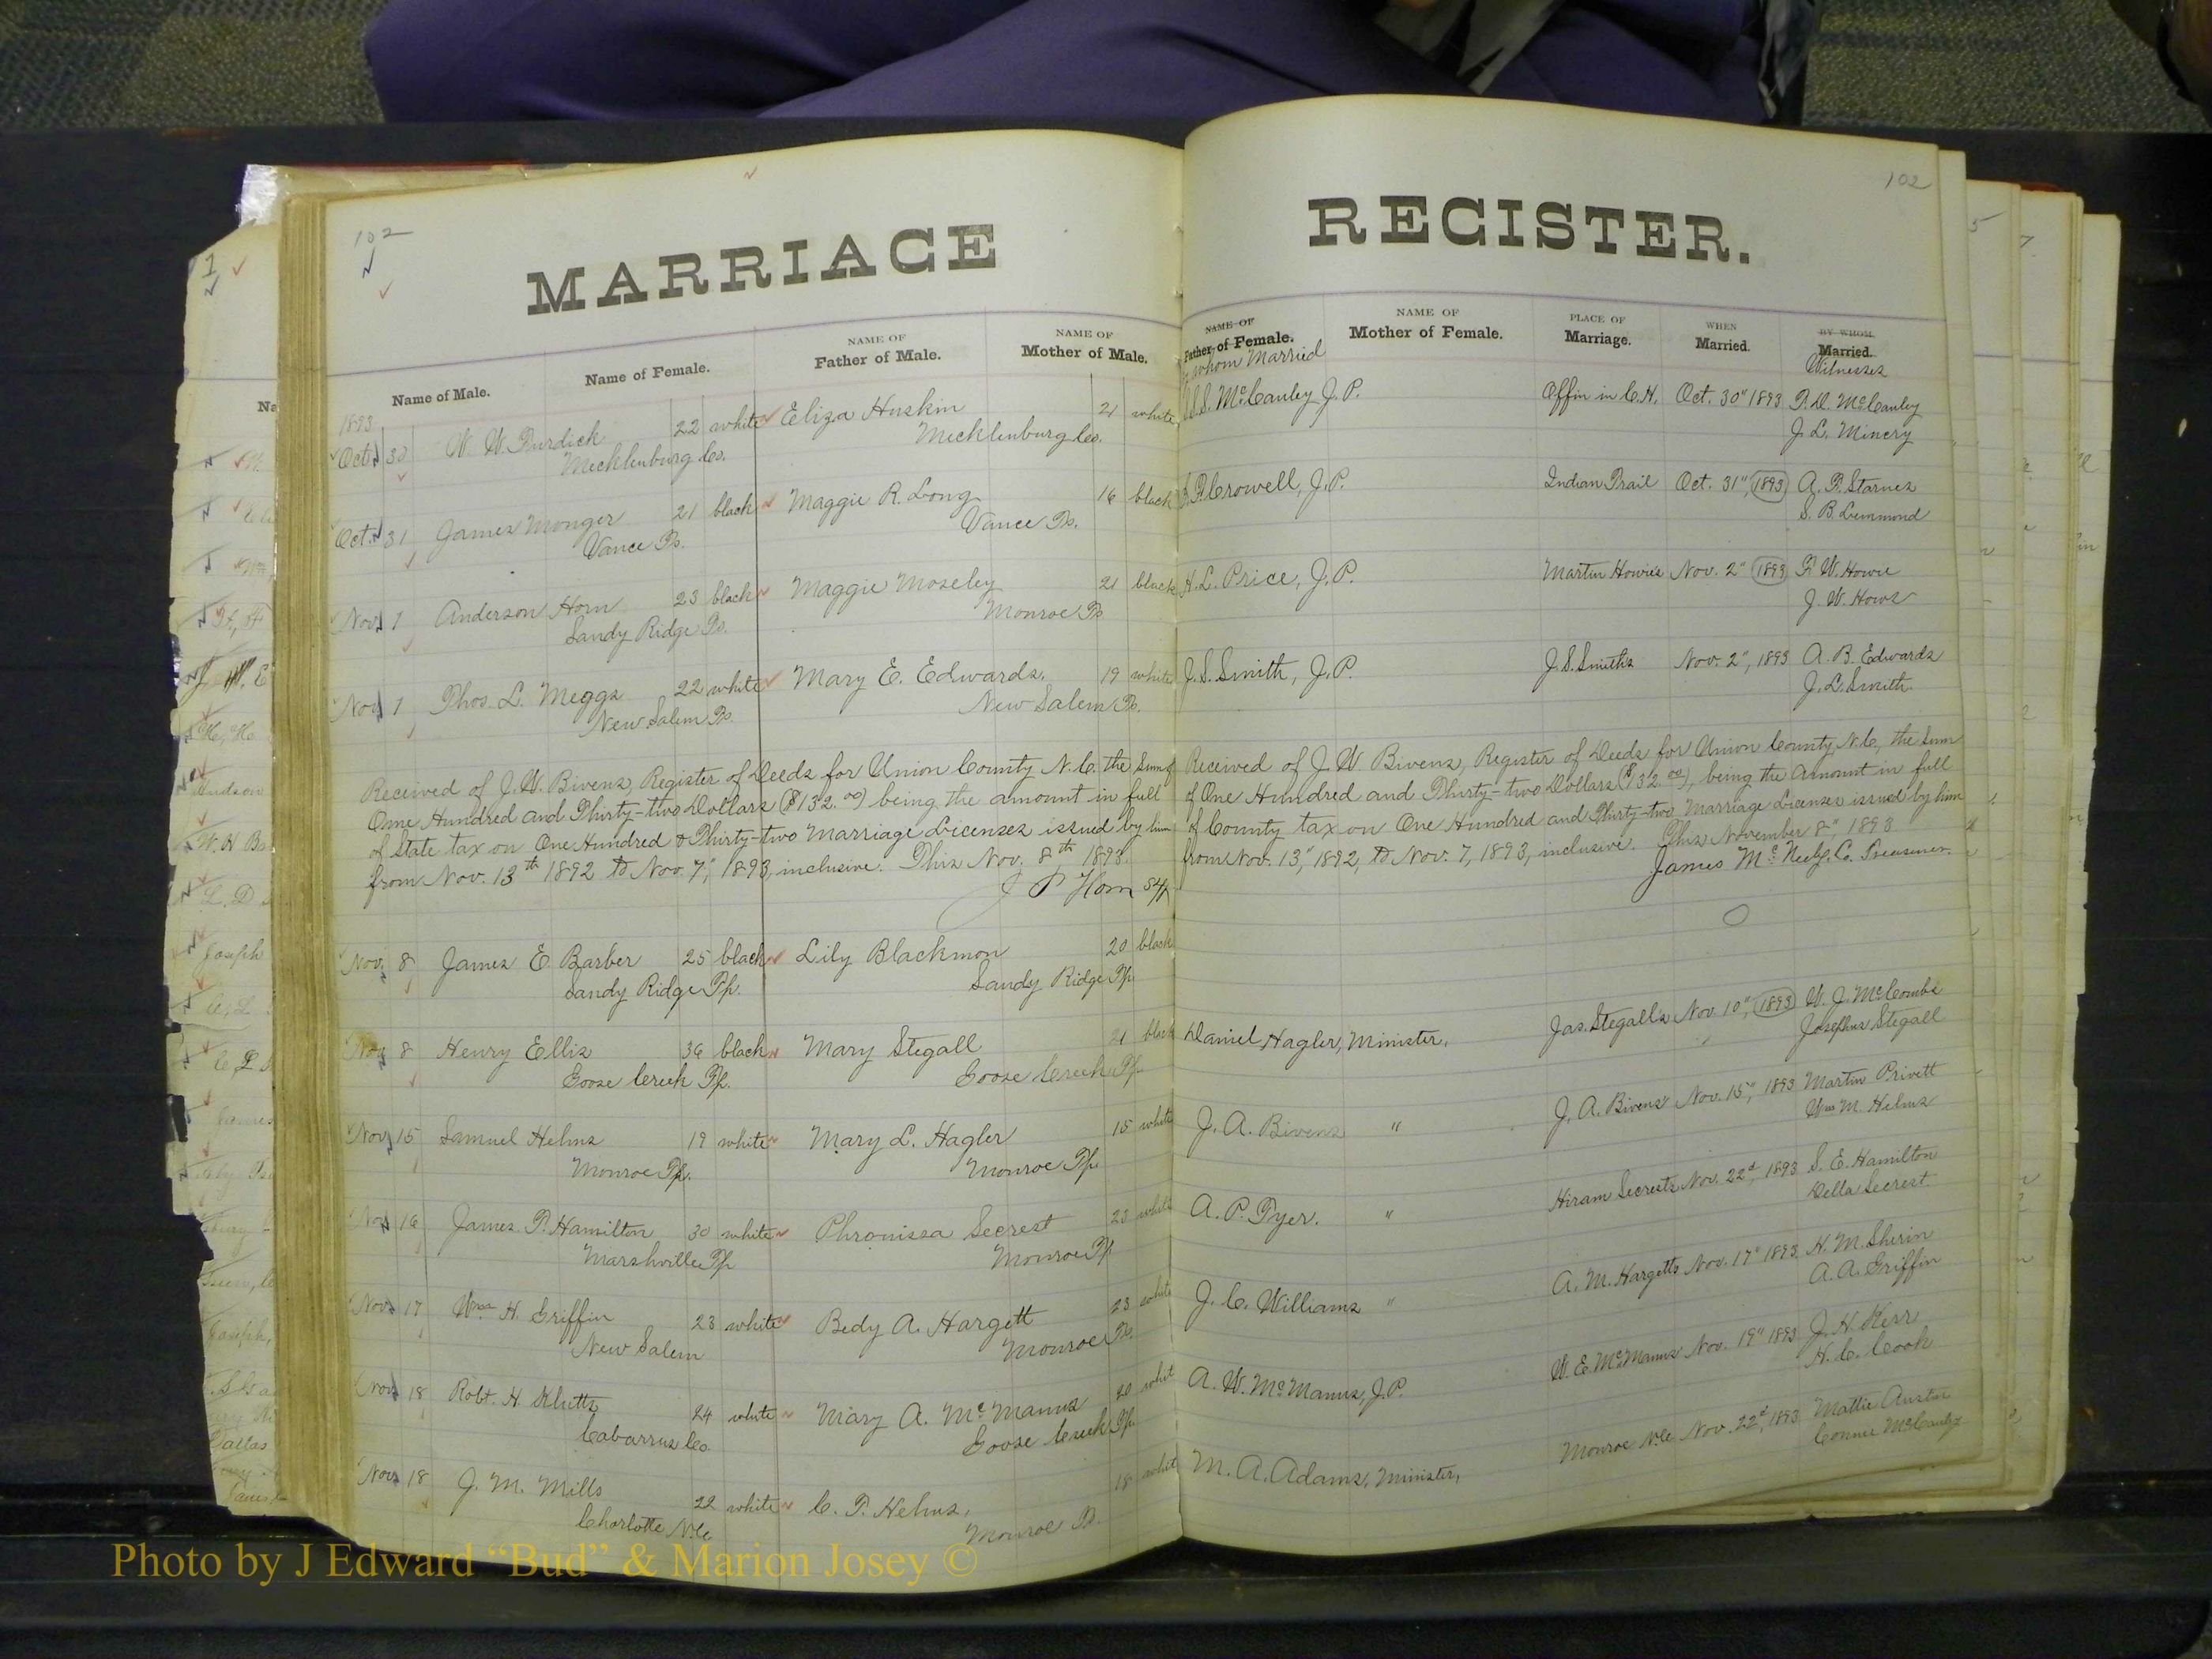 102
MARRIAGE
Name of Male.
Name of Female.
NAME OF
Father of Male.
NAME OF
Mother of Male.
1893
Oct. 30 W. W. Purdick 22 white Eliza Huskin 21 white
Mecklenburg Co. Mecklenburg Co.
Oct. 31 James Monger 21 black Maggie R. Long 16 black
Vance Ts. Vance Ts.
Nov. 1 Anderson Horn 23 black Maggie Moseley 21 black
Sandy Ridge Ts. Monroe Ts
Nov. 1 Thos. L. Meggs 22 white Mary E. Edwards. 19 white
New Salem Ts. New Salem Ts.
Received of J. W. Bivens, Register of Deeds for Union County N. C. the Sum of
One Hundred and Thirty-two Dollars ($132.00) being the amount in full
of State tax on One Hundred & Thirty-two Marriage Licenses issued by him
from Nov. 13th 1892 to Nov. 7", 1893, inclusive. This Nov. 8th 1893.
J P Horn Shff
Nov. 8 James E Barber 25 black Lily Blackmon 20 black
Sandy Ridge Tp. Sandy Ridge Tp
Nov 8 Henry Ellis 36 black Mary Stegall 21 black
Goose Creek Tp. Goose Creek Tp.
Nov 15 Samuel Helms 19 white Mary L. Hagler 15 white
Monroe Tp. Monroe Tp
Nov 16 James P. Hamilton 30 white Phronissa Secrest 23 white
Marshville Tp Monroe Tp
Nov. 17 Wm. H. Griffin 23 white Bedy A. Hargett 23 white
New Salem Monroe Ts.
Nov 18 Robt. H. Klutts 24 white Mary A. McManus 20 whit
Cabarrus Co. Goose Creek Tp.
Nov 18 J. M. Mills 22 white C. T. Helms, 18 whit
Charlotte N.C. Monroe Ts.
102
REGISTER.
NAME OF
Father of Female.
whom Married
NAME OF
Mother of Female.
PLACE OF
Marriage.
WHEN
Married.
BY WHOM
Married.
Witnesses
S. McCauley J. P. Offin in C. H. Oct. 30" 1893 McCauley
J. L. Mincry
Crowell, J. P. Indian Trail Oct. 31", 1893 A. F. Starnes
S. B. Lemmond
H. L. Price, J. P. Martin Howies Nov. 2" 1893 F. W. Howie
J. W. Hows
J. S. Smith, J. P. J. S. Smiths Nov. 2", 1893 A. B. Edwards
J. L. Smith
Received of J. W Bivens, Register of Deeds for Union County, N. C., the Sum
of One Hundred and Thirty-two Dollars ($132.00), being the Amount in full
of County tax on One Hundred and Thirty-two Marriage Licenses issued by him
from Nov. 13", 1892, to Nov. 7, 1893, inclusive. This November 8", 1893
James McNeely, Co. Treasurer.
Daniel Hagler, Minister, Jas. Stegalls Nov. 10", 1893 W. J. McCombs
Josephus Stegall
J. A. Bivens " J. A. Bivens Nov. 15", 1893 Martin Privett
Wm M. Helms
A. P. Tyer. " Hiram Secrests Nov. 22d, 1893 S. E. Hamilton
Della Secrest
J. C. Williams " A. M. Hargetts Nov. 17" 1893 H. M. Sherin
A. A. Griffin
A. W. McManus, J. P. W. E. McManus Nov. 19" 1893 J. H. Kerr
H. C. Cook
M. A. Adams, Minister, Monroe N.C. Nov. 22d, 1893 Mattie Austin
Connie McCauley
Photo by J Edward “Bud” & Marion Josey ©